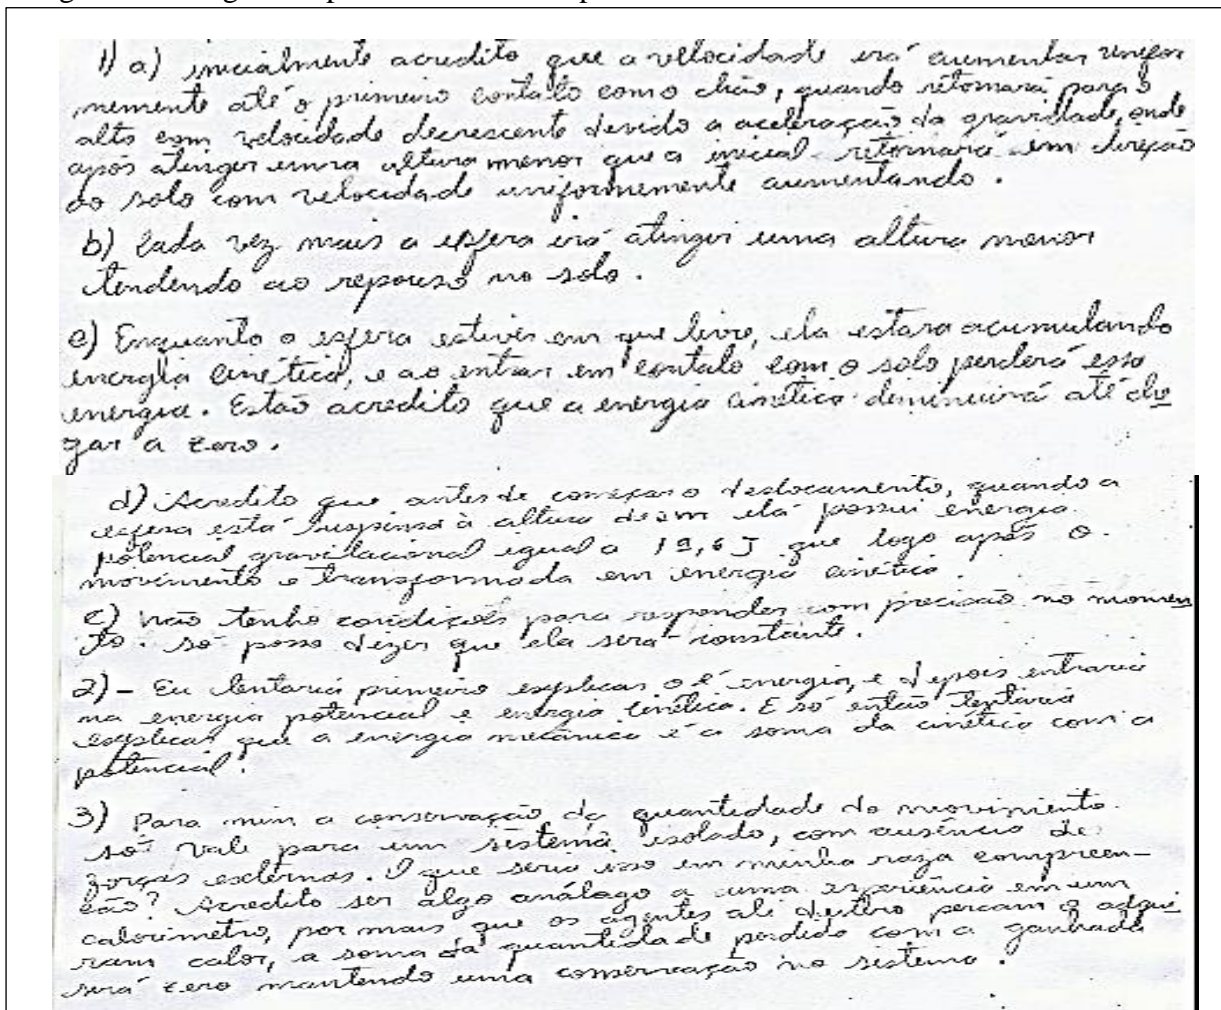 1) a) inicialmente acredito que a velocidade irá aumentar unifor
memente até o primeiro contato com o chão, quando retornará para o
alto com velocidade decrescente devido a aceleração da gravidade, onde
após atingir uma altura menor que a inicial retornará em direção
ao solo com velocidade uniformemente aumentando.
b) Cada vez mais a esfera irá atingir uma altura menor
tendendo ao repouso no solo.
c) Enquanto a esfera estiver em que livre, ela estara acumulando
energia cinética, e ao entrar em contato com o solo perderá essa
energia. Estão acredito que a energia cinética diminuirá até che
gar a zero.
d) Acredito que antes de começar o deslocamento, quando a
esfera está suspensa à altura de 2m ela possui energia
potencial gravitacional igual a 19,6 J que logo após o
movimento e transformada em energia cinética.
e) não tenho condições para responder com precisão no momen
to. só posso dizer que ela será constante.
2) - Eu tentaria primeiro explicar o é energia, e depois entraria
na energia potencial e energia cinética. E só então tentaria
explicar que a energia mecânica é a soma da cinética com a
potencial.
3) Para mim a conservação da quantidade do movimento
só vale para um sistema isolado, com ausência de
forças externas. O que seria isso em minha raza compreen-
são? Acredito ser algo análogo a uma experiência em um
calorimetro, por mais que os agentes ali dentro percam o adqui
ram calor, a soma da quantidade perdida com a ganhada
será zero mantendo uma conservação no sistema.